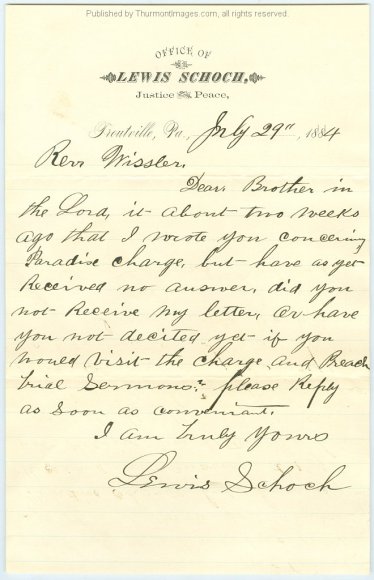 Published by Thurmontimages.com, all rights reserved.
OFFICE OF
LEWIS SCHOCH,
Justice of the Peace,
Troutville, Pa., July 29" 1884
Revr Wissler.
Dear Brother in
the Lord, it about two weeks
ago that I wrote you concering
Paradise charge, but have as yet
Received no answer, did you
not Receive my letter, or have
you not decited yet if you
would visit the charge and Preach
trial Sermons? please Reply
as soon as conveniant.
I am truly Yours
Lewis Schoch